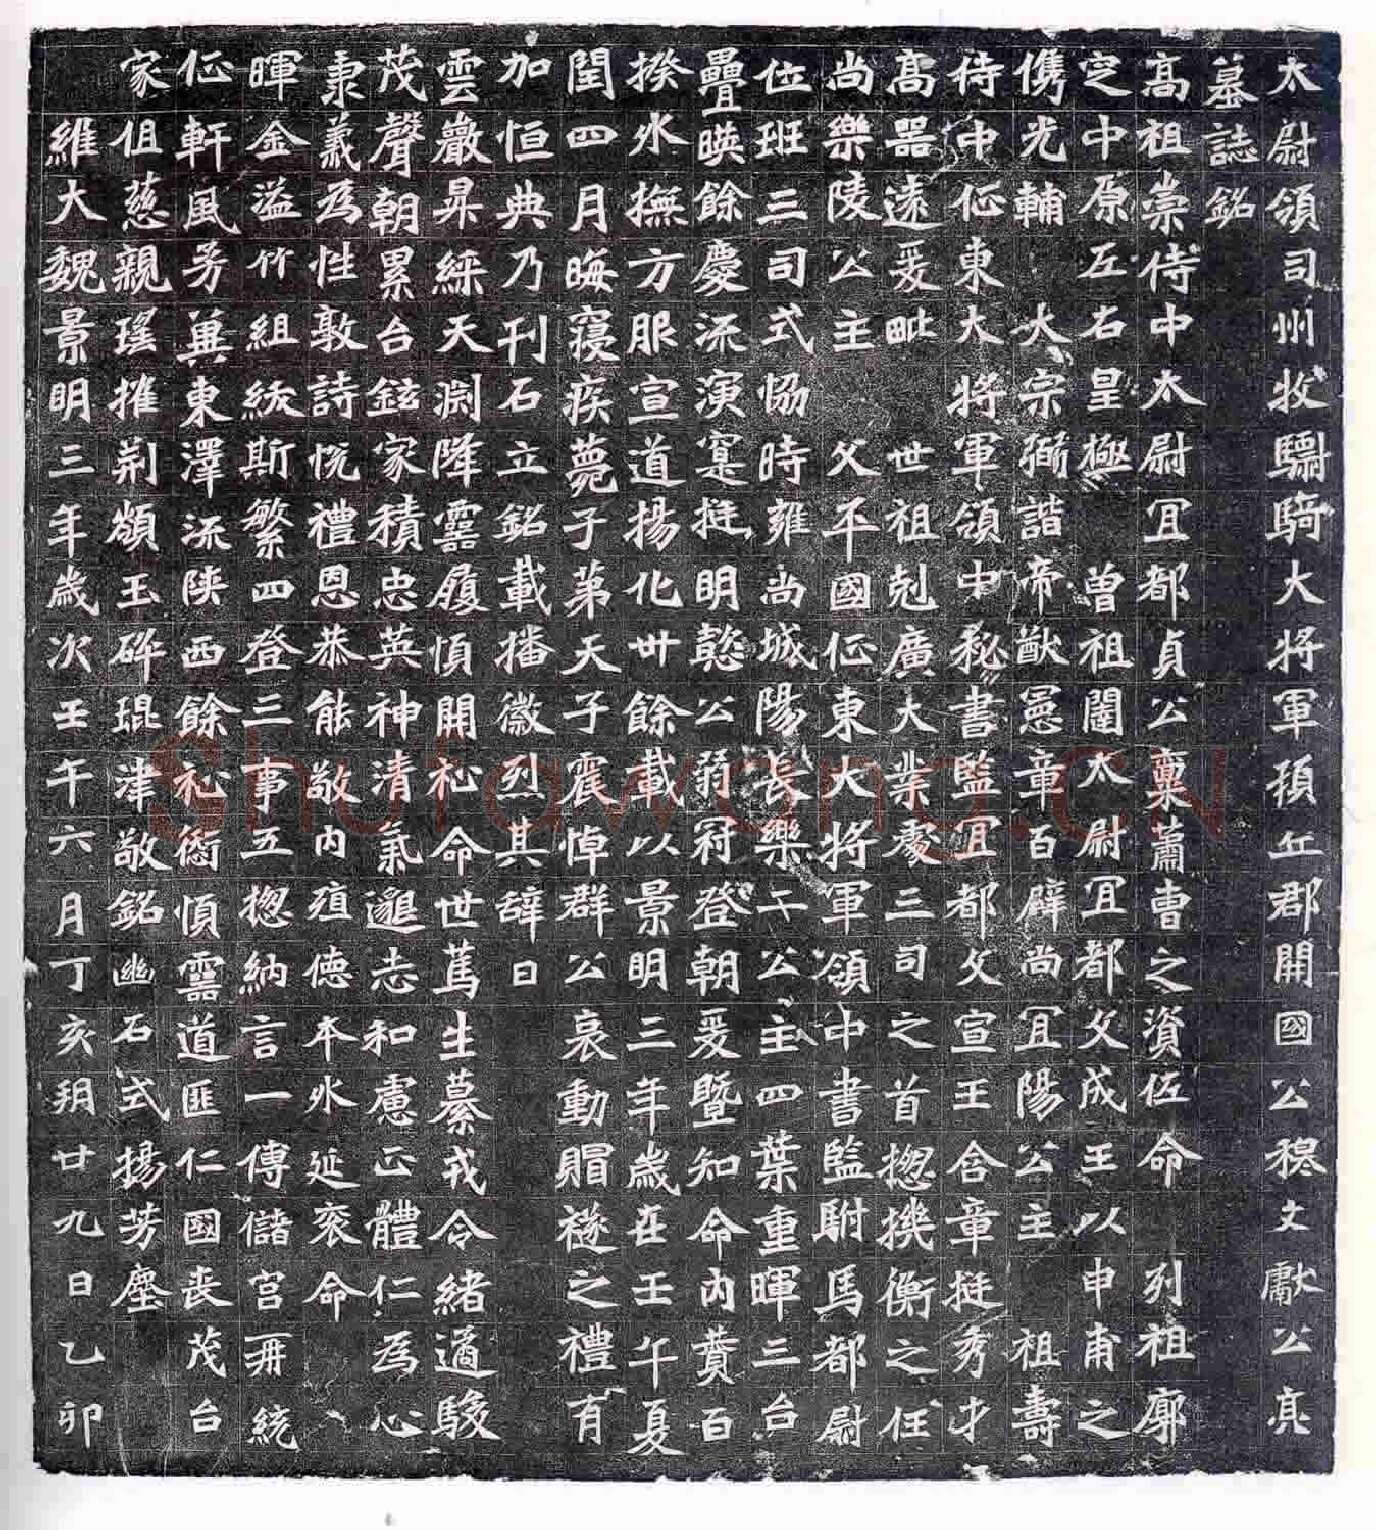 太尉領司州牧驃騎大將軍頓丘郡開國公穆文獻公亮
墓誌銘
高祖崇侍中太尉宜都貞公稟蕭曹之資佐命列祖廓
定中原左右皇極曾祖闥太尉宜都文成王以申甫之
儁光輔大宗弼諧帝猷憲章百辟尚宜陽公主祖壽
侍中征東大將軍領中秘書監宜都文宣王含章挺秀才
高器遠爰毗世祖剋廣大業處三司之首揔機衡之任
尚樂陵公主父平國征東大將軍領中書監駙馬都尉
位班三司式協時雍尚城陽長樂二公主四葉重暉三台
疊暎餘慶流演寔挺明懿公弱冠登朝爰曁知命內賛百
揆外撫方服宣道揚化卅餘載以景明三年歲在壬午夏
閏四月晦寢疾薨于第天子震悼群公哀動賵襚之禮有
加恒典乃刊石立銘載播徽烈其辭曰
雲巖昇綵天淵降靈履順開祉命世篤生纂戎令緒邁駿
茂聲朝累台鉉家積忠英神清氣邈志和慮正體仁為心
秉義為性敦詩悅禮恩恭能敬內殖德本外延衮命
暉金溢竹組綬斯繁四登三事五揔納言一傅儲宮再統
征軒風芳冀東澤流陝西餘祉銜順靈道匪仁國喪茂台
家徂慈親瑤摧荊頹玉碎琨津敬銘幽石式揚芳塵
維大魏景明三年歲次壬午六月丁亥朔廿九日乙卯
Shufawang.CN